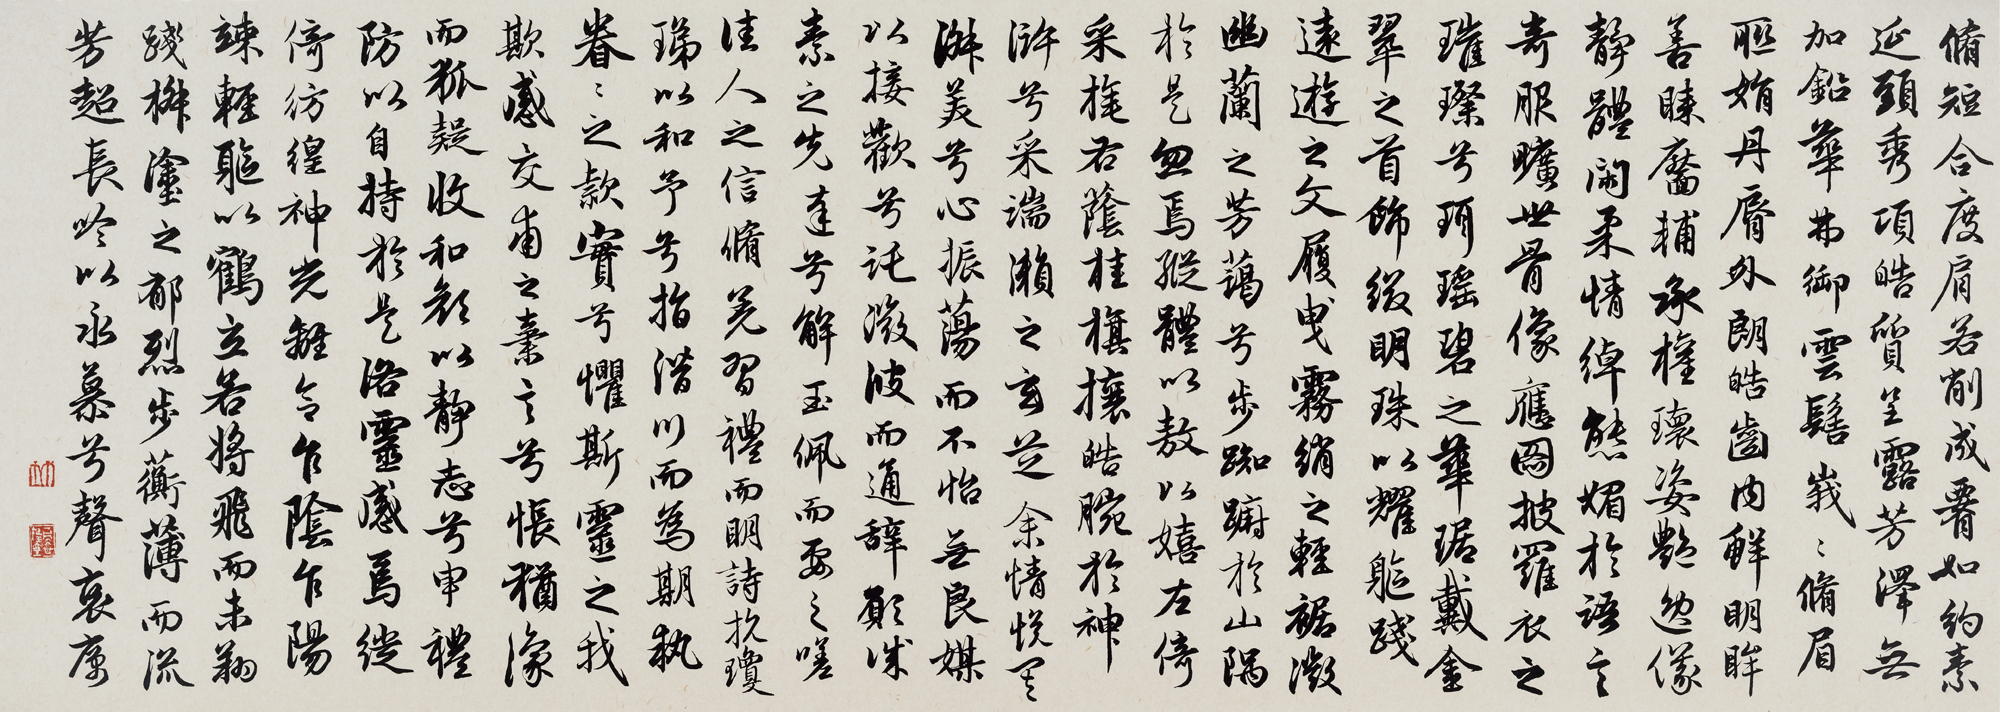 脩短合度肩若削成腰如約素
延頸秀項皓質呈露芳澤無
加鉛華弗御雲髻峩〻脩眉
聯娟丹脣外朗皓齒內鮮明眸
善睞靨輔承權瓌姿艷逸儀
靜體閑柔情綽態媚於語言
奇服曠世骨像應圖披羅衣之
璀璨兮珥瑤碧之華琚戴金
翠之首飾綴明珠以耀軀踐
遠遊之文履曳霧綃之輕裾微
幽蘭之芳藹兮步踟躕於山隅
於是忽焉縱體以敖以嬉左倚
采旄右蔭桂旗攘皓腕於神
滸兮采湍瀨之玄芝余情悅其
淑美兮心振蕩而不怡無良媒
以接歡兮託微波而通辭願誠
素之先達兮解玉佩而要之嗟
佳人之信脩羌習禮而明詩抗瓊
珶以和予兮指潛川而為期執
眷〻之款實兮懼斯靈之我
欺感交甫之棄言兮悵猶豫
而狐疑收和顏以靜志兮申禮
防以自持於是洛靈感焉徙
倚彷徨神光離合乍陰乍陽
竦輕軀以鶴立若將飛而未翔
踐椒塗之郁烈步蘅薄而流
芳超長吟以永慕兮聲哀厲